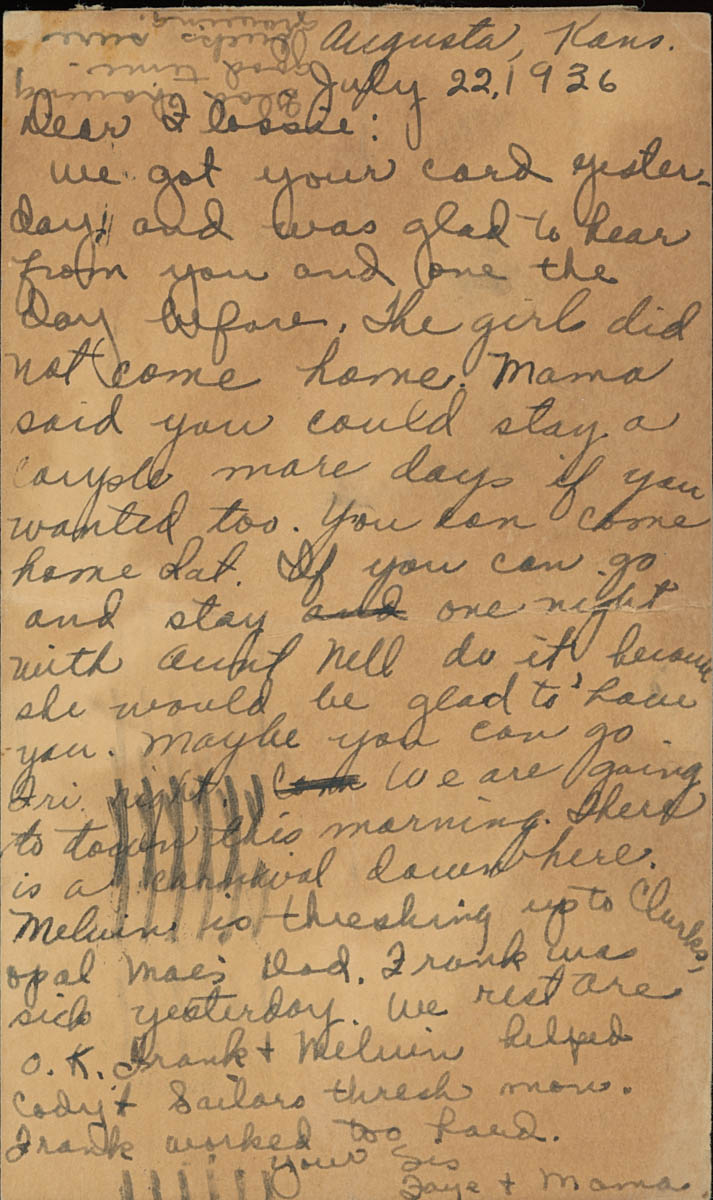 Augusta, Kans.
July 22, 1936
Dear Flossie:
We got your card yester-
day, and was glad to hear
from you and one the
day before. The girl did
not come home. Mama
said you could stay a
couple more days if you
wanted too. You can come
home Sat. If you can go
and stay and one night
with Aunt Nell do it because
she would be glad to have
you. Maybe you can go
Fri night. Can We are going
to town this morning. There
is a carnival down here.
Melvin is threshing up to Clarks,
opal Mae's Dad. Frank was
sick yesterday. We rest are
O.K. Frank + Melvin helped
Cody + Sailors thresh mon.
Frank worked too hard.
your Sis
Faye + Mama
Glad having
good time.
Chicks sure
growing.